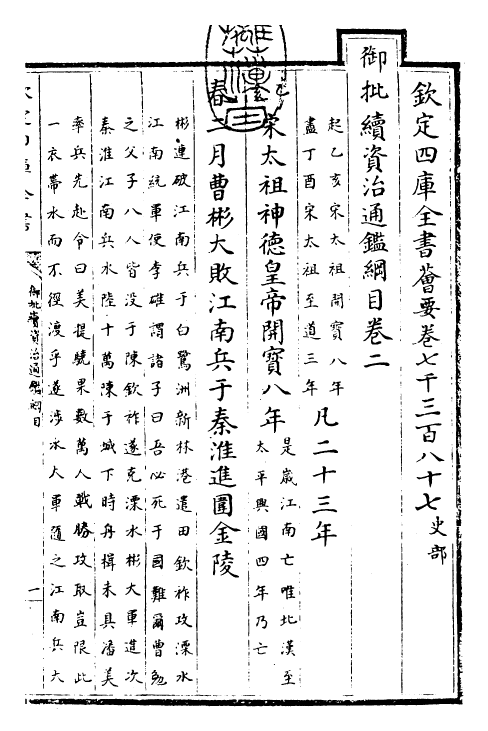 欽定四庫全書薈要卷七千三百八十七史部
御批續資治通鑑綱目卷二
起乙亥宋太祖開寶八年
盡丁酉宋太祖至道三年
凡二十三年
宋太祖神德皇帝開寶八年
是歲江南亡唯北漢至
太平興國四年乃亡
春二月曹彬大敗江南兵于秦淮進圍金陵
彬連破江南兵于白鷺洲新林港遣田欽祚攻溧水
江南統軍使李雄謂諸子曰吾必死于國難爾曹勉
之父子八人皆没于陳欽祚遂克溧水彬大軍進次
秦淮江南兵水陸十萬陳于城下時舟楫未具潘美
率兵先赴令曰美提驍果數萬人戰勝攻取豈限此
一衣帶水而不徑渡乎遂涉水大軍隨之江南兵大
御批續資治通鑑綱目
一